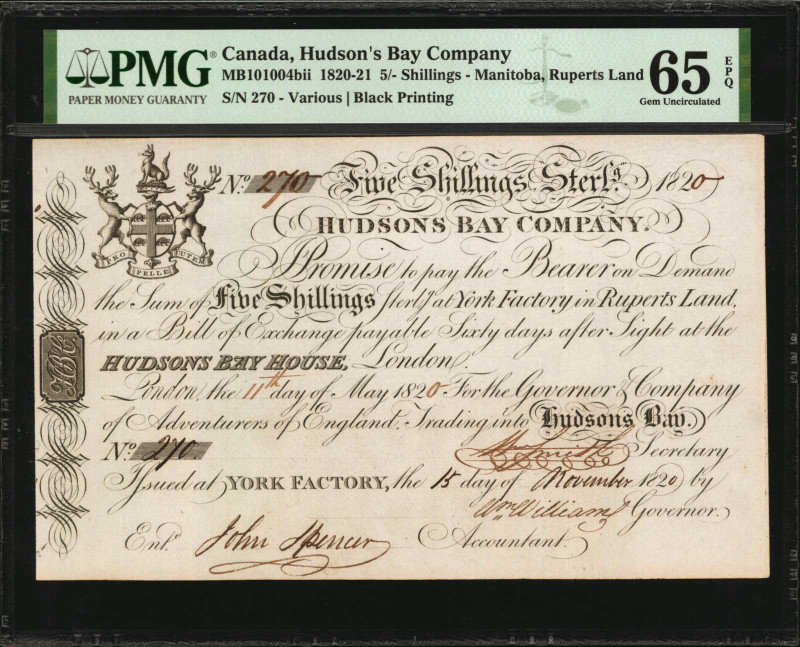 PMG®
PAPER MONEY GUARANTY
Canada, Hudson's Bay Company
MB101004bii 1820-21 5/- Shillings - Manitoba, Ruperts Land
S/N 270 - Various | Black Printing
65 EPQ
Gem Uncirculated
PRO PELLE CUTEM
No. 270 Five Shillings Sterlg. 1820
HUDSONS BAY COMPANY.
Promise to pay the Bearer on Demand
the Sum of Five Shillings Sterlg. at York Factory in Ruperts Land,
in a Bill of Exchange payable Sixty days after Sight at the
HUDSONS BAY HOUSE, London.
HBC
London, the 11th day of May 1820 For the Governor & Company
of Adventurers of England, Trading into Hudsons Bay.
No. 270. Smith Secretary
Issued at YORK FACTORY, the 15 day of November 1820 by
Wm Williams Governor.
Entd. John Spencer Accountant.